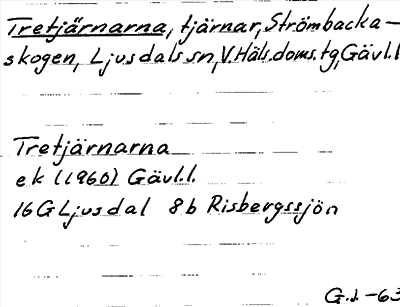 Tretjärnarna, tjärnar, Strömbacka-
skogen, Ljusdals sn, V. Häls. doms. tg, Gävl. l
Tretjärnarna
ek (1960) Gävl. l.
16G Ljusdal 8b Risbergssjön
G.J. -63